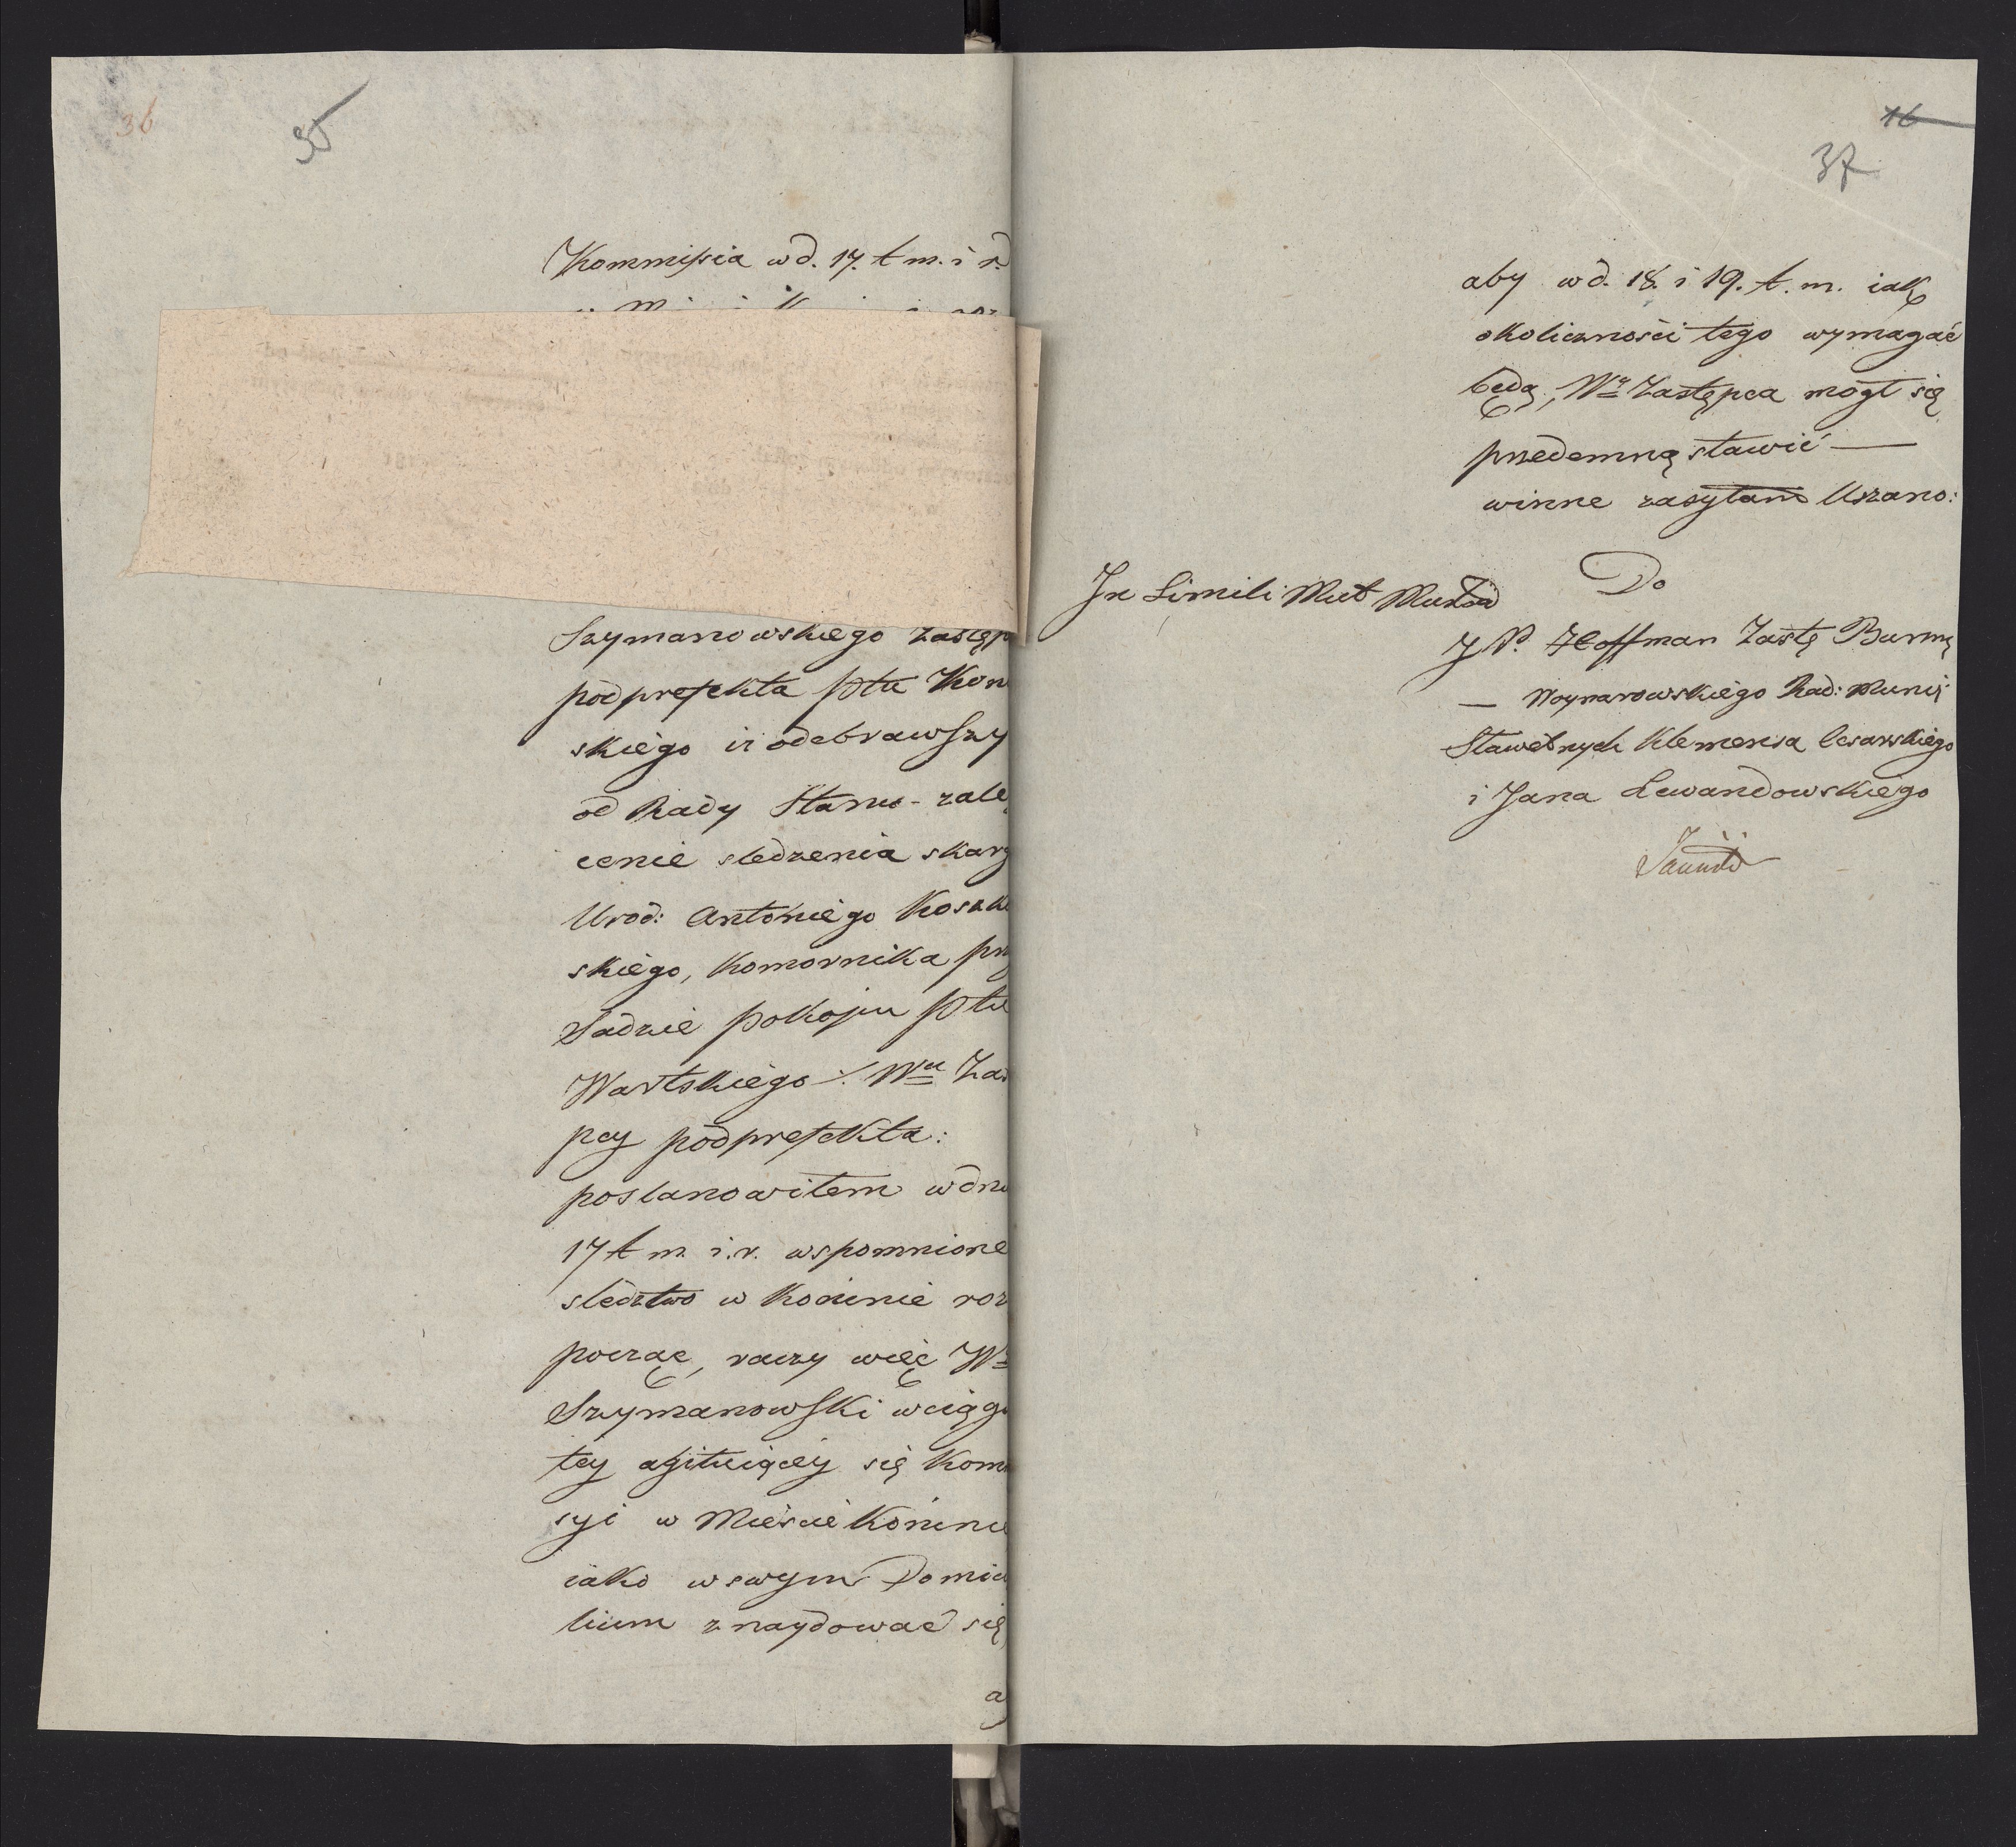 36
35
Kommissia w d. 17. t m. i r.
Szymanowskiego Zastęp
podprefekta Ptu Kon
skiego iż odebrawszy
od Rady Stanu - zale
cenie sledzenia skarg
Urod: Antoniego
skiego, Komornika prz
Sadzie pokoju Ptu
Wartskiego /. Wu Zas
pcy podprefekta:
postanowiłem w dni
17 t m. i. r. wspomnione
sledztwo w Koninie roz
począć, raczy więc Wy
Szymanowski w ciągu
tey agituiącey się Kom
syi w Mieście Koninie
iako w swym Domici
lium znaydować się
a
16
37
aby w d. 18. i 19. t. m. iak
okoliczności tego wymagać
będą, Wy Zastępca mogł się
przedemną stawić —
winne zasyłam Uszano:
In Simili Mut Mutand
Do
J P. Hoffman Zastę Burmę
— Woynarowskiego Rad: Munic:
Sławetnych Klemensa Cesarskiego
i Jana Lewandowskiego